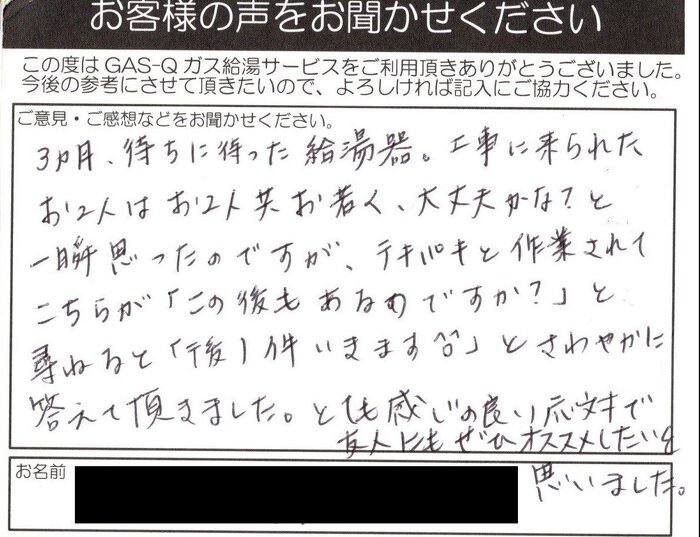 お客様の声をお聞かせください
この度はGAS-Qガス給湯サービスをご利用頂きありがとうございました。
今後の参考にさせて頂きたいので、よろしければ記入にご協力ください。
ご意見・ご感想などをお聞かせください。
3カ月、待ちに待った給湯器。工事に来られた
お2人はお2人共お若く、大丈夫かな?と
一瞬思ったのですが、テキパキと作業されて
こちらが「この後もあるのですか?」と
尋ねると「後1件いきます^^」とさわやかに
答えて頂きました。とても感じの良い応対で
友人にもぜひオススメしたいと
思いました。
お名前